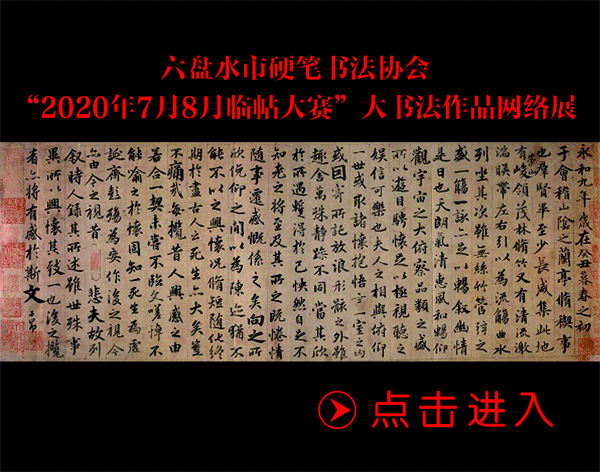 六盘水市硬笔书法协会
“2020年7月8月临帖大赛”大书法作品网络展
永和九年歲在癸丑暮春之初
于會稽山陰之蘭亭脩禊事
也羣賢畢至少長咸集此地
有崇山峻領茂林脩竹又有清流激
湍暎帶左右引以為流觴曲水
列坐其次雖無絲竹管弦之
盛一觴一詠亦足以暢叙幽情
是日也天朗氣清惠風和暢仰
觀宇宙之大俯察品類之盛
所以遊目騁懷足以極視聽之
娛信可樂也夫人之相與俯仰
一世或取諸懷抱悟言一室之內
或因寄所託放浪形骸之外雖
趣舍萬殊靜躁不同當其欣
於所遇蹔得於己快然自足不
知老之將至及其所之既惓情
隨事遷感慨係之矣向之所
欣俛仰之閒以為陳迹猶不
能不以之興懷況脩短隨化終
期於盡古人云死生亦大矣豈
不痛哉每攬昔人興感之由
若合一契未嘗不臨文嗟悼不
能喻之於懷固知一死生為虛
誕齊彭殤為妄作後之視今
亦由今之視昔 悲夫故列
叙時人錄其所述雖世殊事
異所以興懷其致一也後之攬
者亦將有感於斯文
点击进入